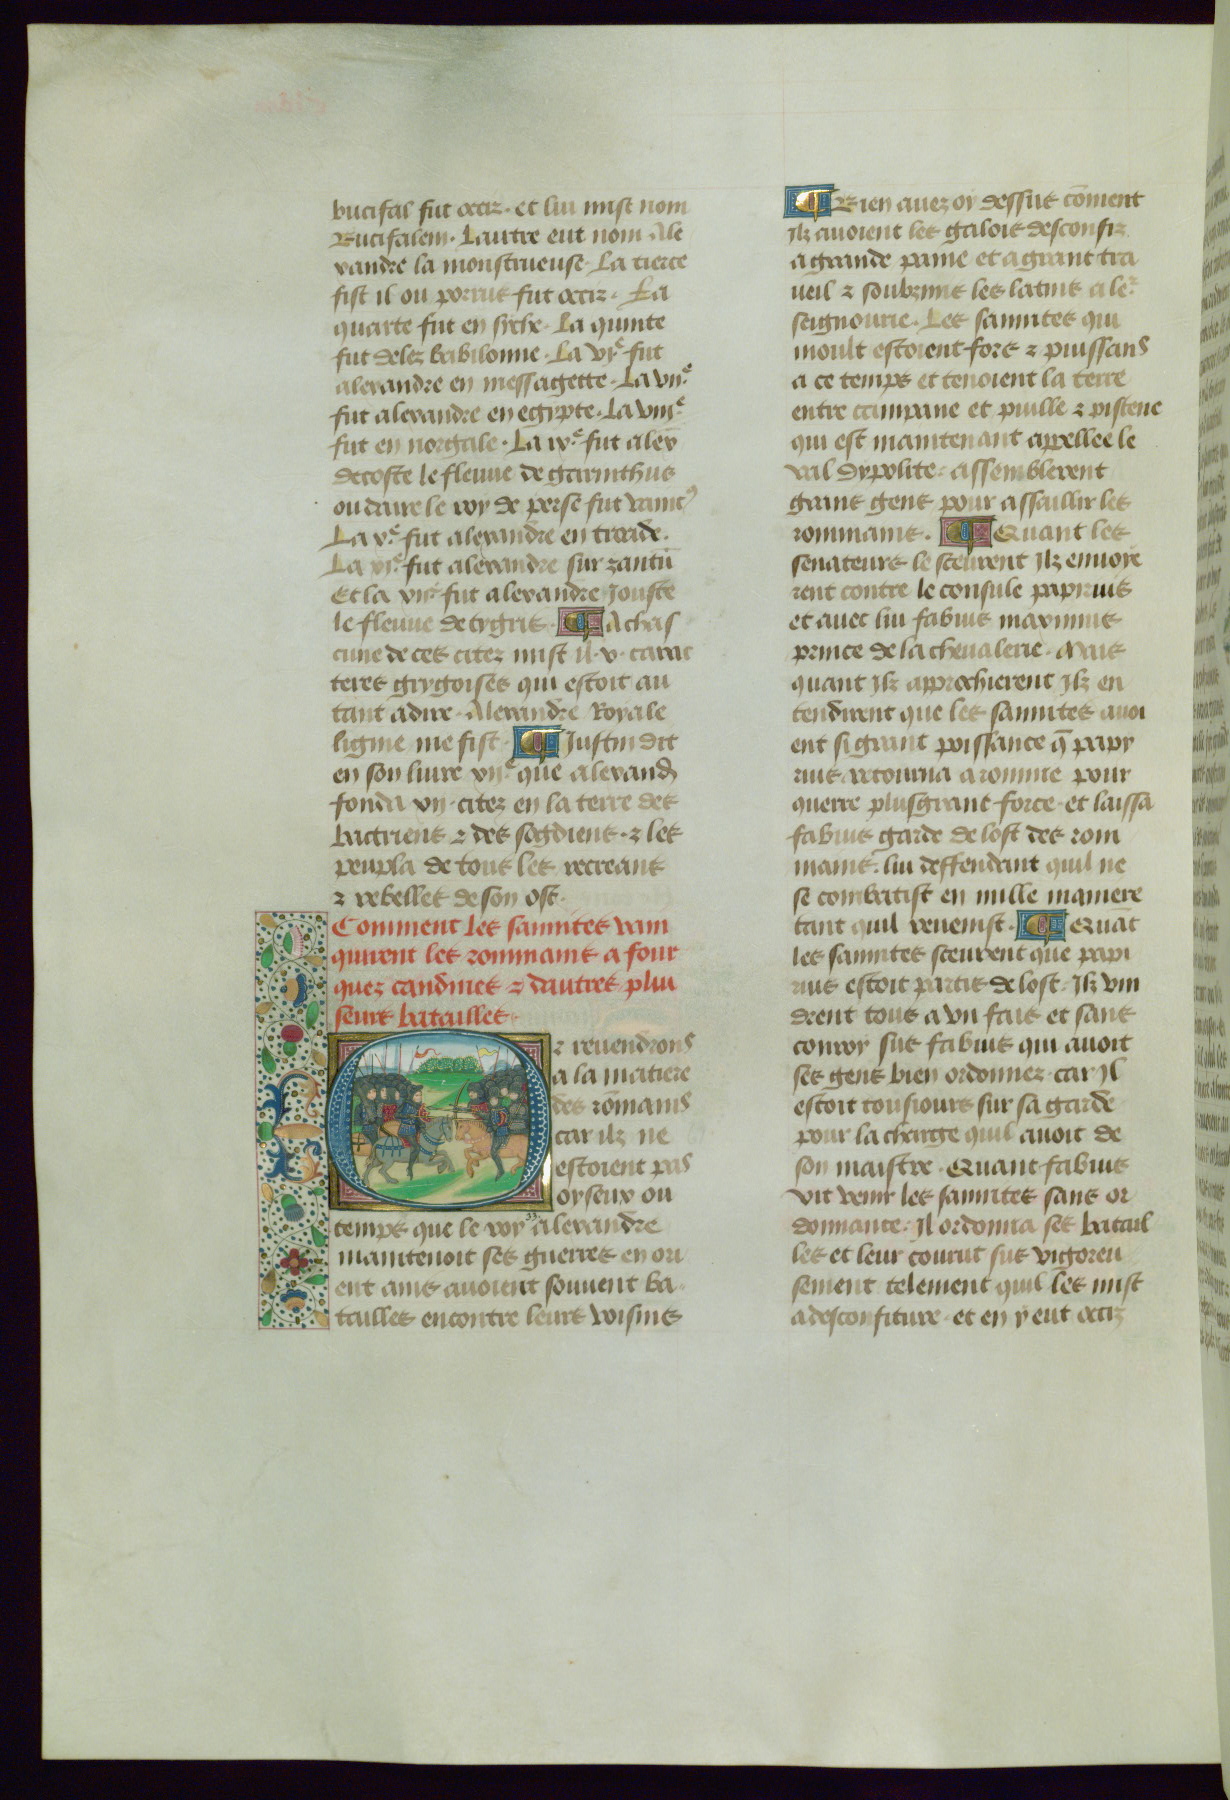 bucifal fut occiz. et lui mist nom
Bucifalem. Lautre eut nom Ale
xandre la monstrueuse. La tierce
fist il ou porrus fut occiz. La
quarte fut en syche. La quinte
fut delez babilonne. La vjͤ fut
alexandre en messagette. La vijͤ.
fut alexandre en egypte. La viijͤ.
fut en norgale. La ixͤ. fut alex̄
decoste le fleuve de garinthus
ou daire le roy de perse fut vainc⁹
La xͤ. fut alexandre en troade.
La xjͤ. fut alexandre sur zantū
Et la xijͤ fut alexandre Jouste
le fleuve de tygris. ¶ A chas
cune de ces citez mist il. v. carac
teres grygoises qui estoit au
tant adire. Alexandre Royale
ligine me fist. ¶ Justin dit
en son livre xijͤ. que alexand̄
fonda xij. citez en la terre des
bactriens ⁊ des sogdiens. ⁊ les
peupla de tous les recreans
⁊ rebelles de son ost.
Comment les sannites vain
quirent les rommains a four
ques caudines ⁊ dautres plu
seurs batailles.
Or revendrons
a la matiere
des rōmains
car ilz ne
estoient pas
oyseux ou
temps que le roy Alexandre
maintenoit ses guerres en ori
ent ains avoient souvent ba
tailles encontre leurs voisins
¶ Bien avez oy dessus cōment
Jlz avoient les galois desconfiz
a grande paine et a grant tra
veil ⁊ soubzmis les latins a leʳ
seignourie. Les sannites qui
moult estoient fors ⁊ puissans
a ce temps et tenoient la terre
entre campane et puille ⁊ pistene
qui est maintenant appellee le
val dypolite. assemblerent
grans gens pour assaillir les
rommains. ¶ Quant les
senateurs le sceurent Jlz envoye
rent contre le consule papirius
et avec lui fabius maximus
prince de la chevalerie. Mais
quant Jlz approchierent Jlz en
tendirent que les sannites avoi
ent si grant poissance q̄ papy
rius retourna a romme pour
querre plus grant force. et laissa
fabius garde de lost des rom
mains. lui deffendant quil ne
se combatist en nulle maniere
tant quil revenist. ¶ Quāt
les sannites sceurent que papi
rius estoit partis de lost. Jlz vin
drent tous a un fais et sans
conroy sus fabius qui avoit
ses gens bien ordonnez. car Jl
estoit tousiours sur sa garde
pour la charge quil avoit de
son maistre. Quant fabius
vit venir les sannites sans or
donnance. Jl ordonna ses batail
les et leur courut sus vigoreu
sement telement quil les mist
a desconfiture. et en y eut occiz